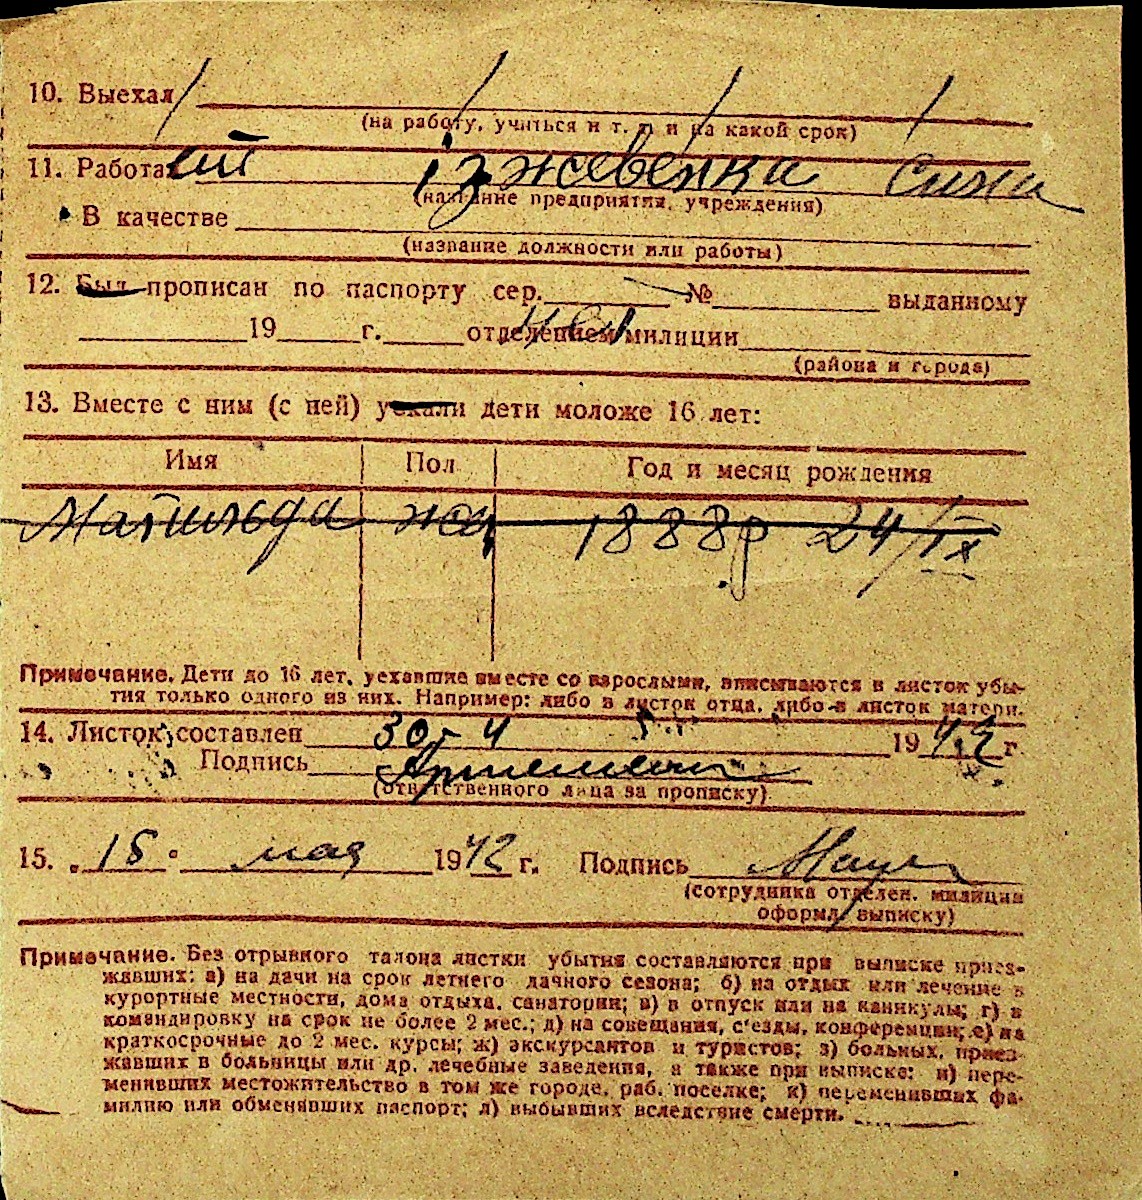 10. Выехал
(на работу, учиться и т. п и на какой срок)
11. Работа ет іжевенка сина
(название предприятия, учреждения)
В качестве
(название должности или работы)
12. Был прописан по паспорту сер. № выданному
19 г. отделением милиции
(района и города)
13. Вместе с ним (с ней) уехали дети моложе 16 лет:
Имя Пол Год и месяц рождения
Матильда жен 1888р 24/IX
Примечание. Дети до 16 лет, уехавшие вместе со взрослыми, вписываются в листок убы-
тия только одного из них. Например: либо в листок отца, либо в листок матери.
14. Листок составлен 30-4 1942 г.
Подпись
(ответственного лица за прописку)
15. „15" мая 1942 г. Подпись
(сотрудника отделен. милиции
оформл. выписку)
Примечание. Без отрывного талона листки убытия составляются при выписке приез-
жавших: а) на дачи на срок летнего дачного сезона; б) на отдых или лечение в
курортные местности, дома отдыха, санатории; в) в отпуск или на каникулы; г) в
командировку на срок не более 2 мес.; д) на совещания, с'езды, конференции; е) на
краткосрочные до 2 мес. курсы; ж) экскурсантов и туристов; з) больных, приез-
жавших в больницы или др. лечебные заведения, а также при выписке: и) пере-
менивших местожительство в том же городе, раб. поселке; к) переменивших фа-
милию или обменявших паспорт; л) выбывших вследствие смерти.